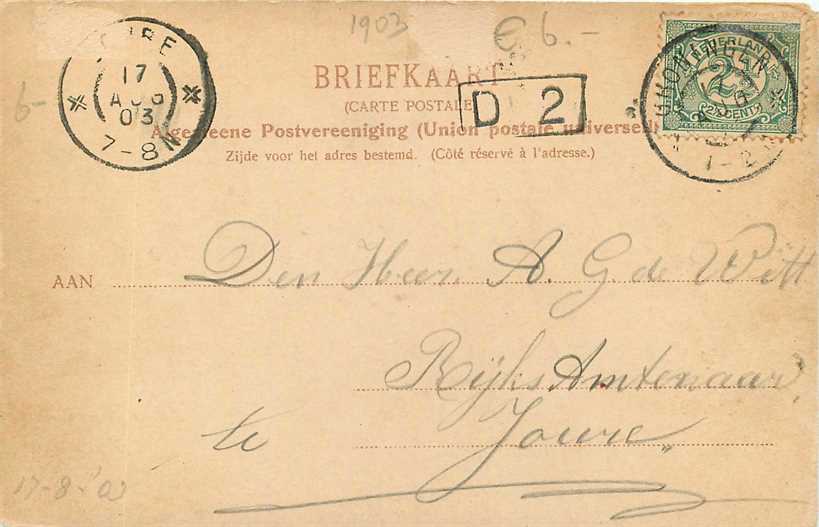 1903
€ 6.-
6-
17
AUG
03
7-8N
GRONINGEN
AUG
1-2
NEDERLAND
2½
2½ CENT
BRIEFKAART
(CARTE POSTALE)
D 2
Algemeene Postvereeniging (Union postale universelle)
Zijde voor het adres bestemd. (Côté réservé à l'adresse.)
AAN Den Heer A. G de Witt
Rijks Ambtenaar
te Joure
17-8-'03